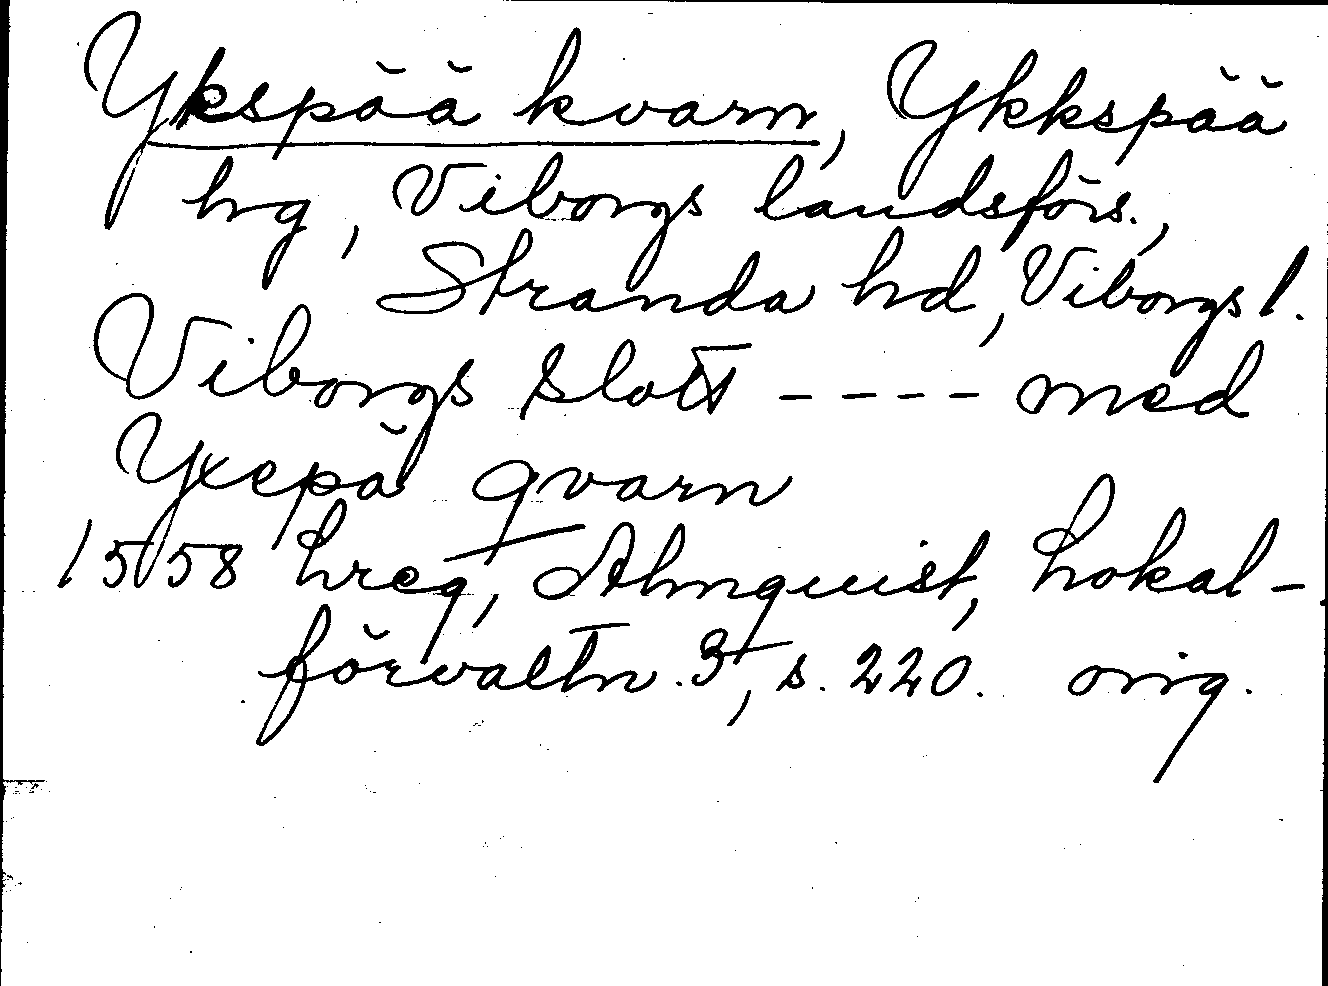 Ykspää kvarn, Ykkspää
hg, Viborgs landsförs.,
Stranda hd, Viborgs l.
Viborgs slott - - - - med
Yxepä qvarn
1558 hreg, Almquist, Lokal-
förvaltn. 3, s. 220. orig.